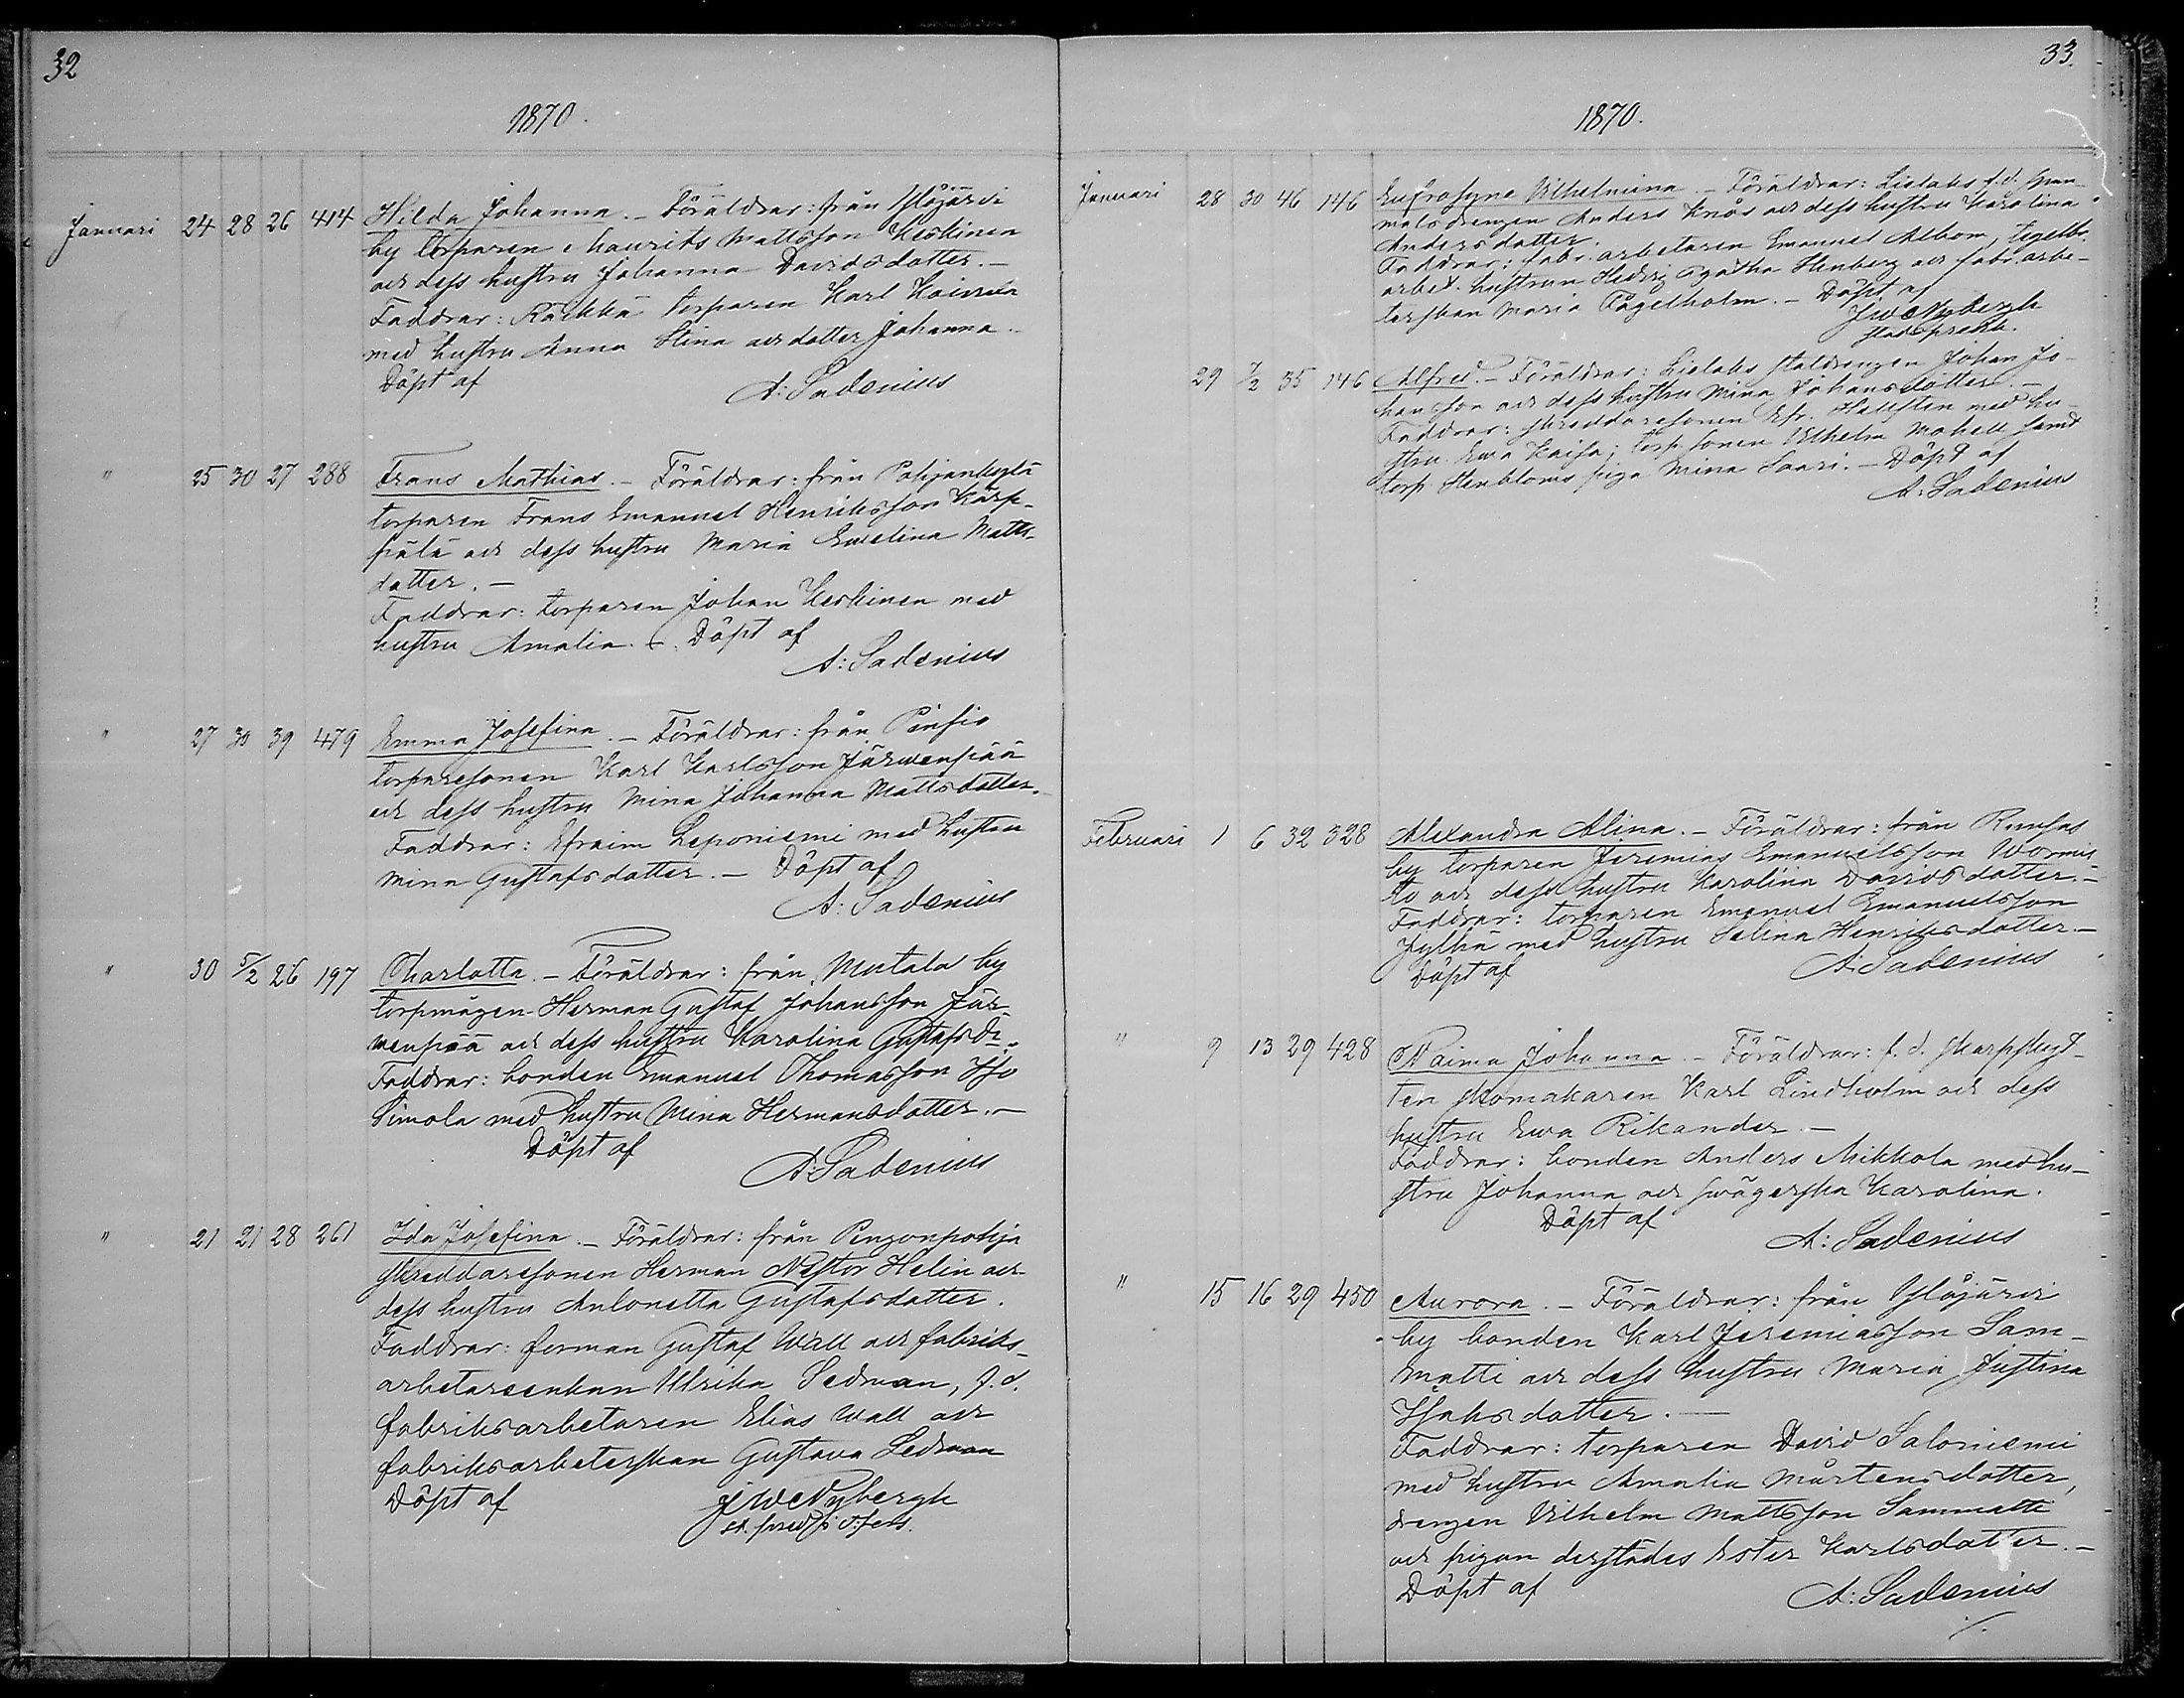 32
1870.
Januari 24 28 26 414 Hilda Johanna. – Föräldrar: från Ylöjärvi
by torparen Maurits Mattsson Keskinen
och dess hustru Johanna Davidsdotter. –
Faddrar: Räikkä torparen Karl
med hustru Anna Stina och dotter Johanna. –
Döpt af
A: Sadenius
" 25 30 27 288 Frans Mathias. – Föräldrar: från Pohjankylä
torparen Frans Emanuel Henriksson Kärp-
pälä och dess hustru Maria Ewelina Matts-
dotter. –
Faddrar: torparen Johan Keskinen med
hustru Amalia. – Döpt af
A: Sadenius
" 27 30 39 479 Emma Josefina. – Föräldrar: från Pinsio
torparesonen Karl Karlsson Järwenpää
och dess hustru Mina Johanna Mattsdotter.
Faddrar: Efraim Leponiemi med hustru
Mina Gustafsdotter. – Döpt af
A: Sadenius
" 30 5/2 26 197 Charlotta. – Föräldrar: från Mutala by
torpmågen Herman Gustaf Johansson Jär-
wenpää och dess hustru Karolina Gustafsdr.
Faddrar: bonden Emanuel Thomasson Iso
Simola med hustru Mina Hermansdotter. –
Döpt af
A: Sadenius
" 21 21 28 261 Ida Josefina. – Föräldrar: från Pengonpohja
skreddaresonen Herman Nestor Helin och
dess hustru Antonetta Gustafsdotter.
Faddrar: forman Gustaf Wall och fabriks-
arbetareenkan Ulrika Sedman, f.d.
fabriksarbetaren Elias Wall och
fabriksarbeterskan Gustava Sedman
Döpt af
J W Nybergh
33.
1870.
Januari 28 30 46 146 Eufrosyne Vilhelmina. – Föräldrar: Lielaks f.d. span-
målsdrengen Anders Knös och dess hustru Karolina
Andersdotter.
Faddrar: fabr. arbetaren Emanuel Ahlbom, tegelbr.
arbet. hustrun Hedvig Agatha Stenberg och fabr. arbe-
terskan Maria Fågelholm. – Döpt af
J W Nybergh
29 7/2 35 146 Alfred. – Föräldrar: Lielaks stalldrengen Johan Jo-
hansson och dess hustru Mina Johansdotter. –
Faddrar: skreddaresonen Efr. Hellsten med hu-
stru Ewa Kaisa; torp. sonen Vilhelm Mohell samt
torp. Stenbloms piga Mina Saari. – Döpt af
A: Sadenius
Februari 1 6 32 328 Alexandra Alina. – Föräldrar: från Runsas
by torparen Jeremias Emanuelsson Wormis-
to och dess hustru Karolina Davidsdotter. –
Faddrar: torparen Emanuel Emanuelsson
Jylhä med hustru Selina Henriksdotter. –
Döpt af
A: Sadenius
" 9 13 29 428 Naima Johanna. – Föräldrar: f.d. skarpskyt-
ten skomakaren Karl Lindholm och dess
hustru Ewa Rikander. –
Faddrar: bonden Anders Mikkola med hu-
stru Johanna och swägerska Karolina.
Döpt af
A: Sadenius
" 15 16 29 450 Aurora. – Föräldrar: från Ylöjärvi
by bonden Karl Jeremiasson Sam-
matti och dess hustru Maria Justina
Isaksdotter. –
Faddrar: torparen David Saloniemi
med hustru Amalia Mårtensdotter,
drengen Vilhelm Mattsson Sammatti
och pigan derstädes Ester Karlsdotter. –
Döpt af
A: Sadenius